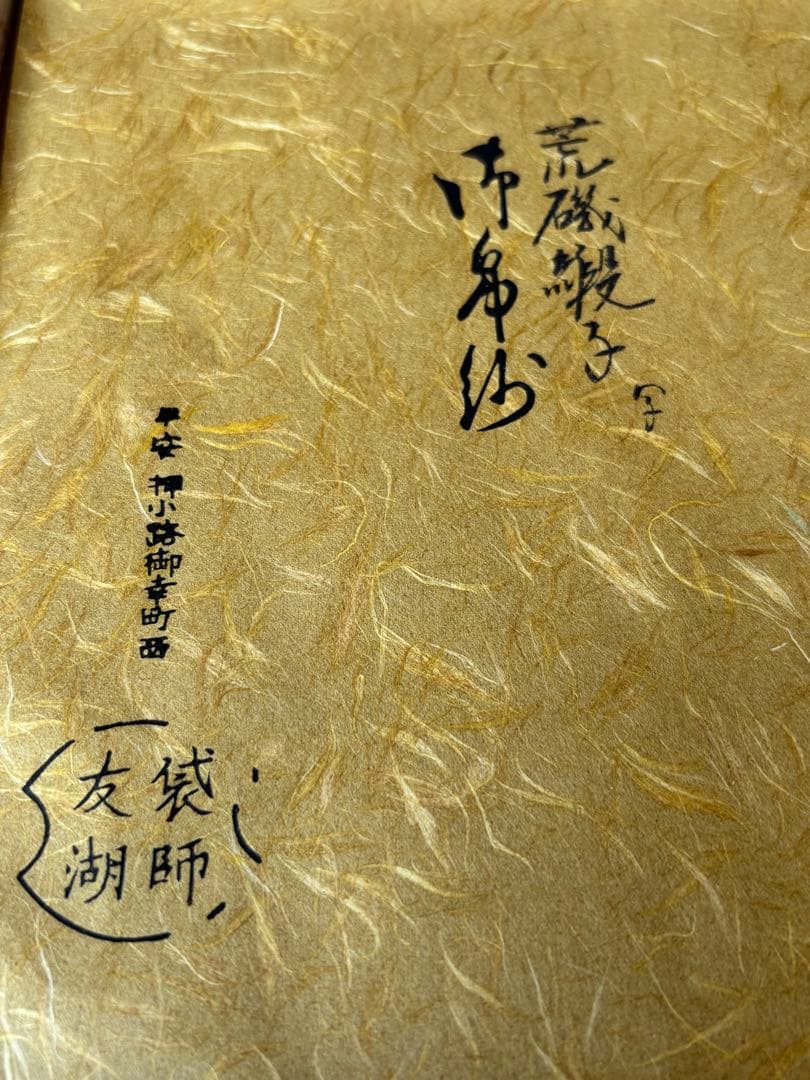 荒磯緞子 写
御帛紗
平安 押小路御幸町西
袋師
友湖